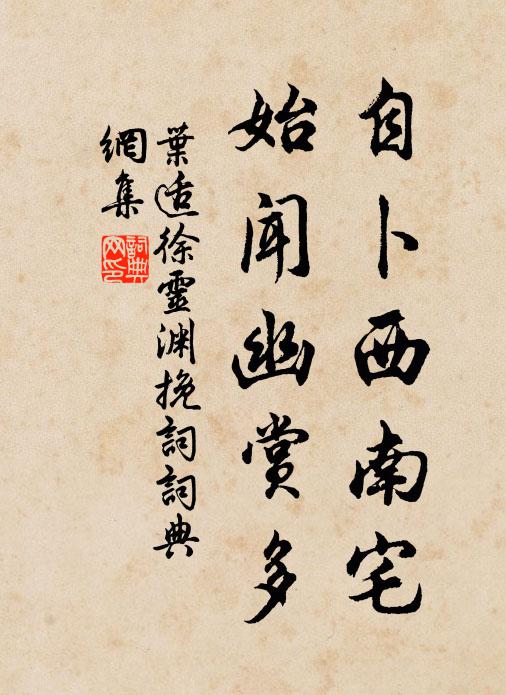 自卜西南宅
始聞幽賞多
葉适徐靈渊挽詞詞典
網集
詞典
网印